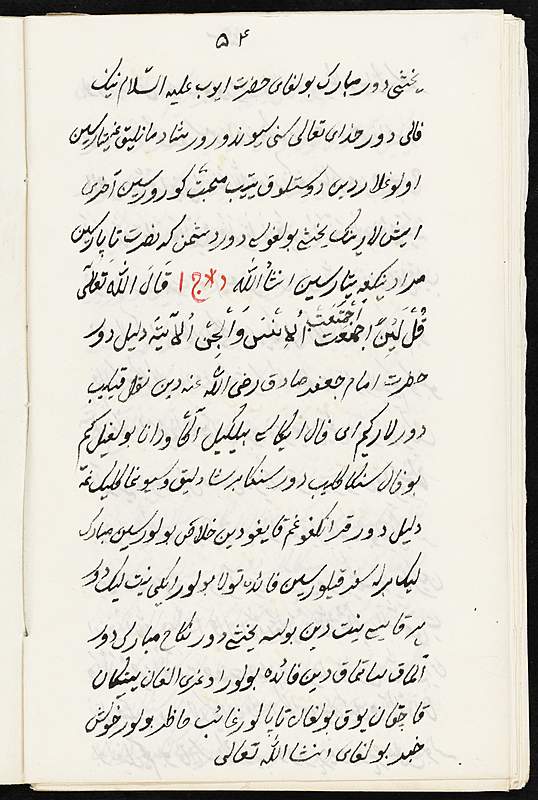 ۵۴
یخشی دور مبارک بولغای حضرت ایوب علیه السّلام نینک
فالی دور خدای تعالی سنی سیوندورور شادمانلیق غه یتارسین
اولوغلاردین دوستلوق یتیب محبت کورورسین آخری
ایش لارینک یخشی بولغوسی دور دشمن که نصرت تاپارسین
مرادینکغه یتارسین انشاالله قَالَ اللهُ تَعَالَی
قُلْ لَئِنِ اجْتَمَعَتِ اَلْاِنْسُ وَاَلْجِنُّ اَلْآیَة دلیل دور
حضرت امام جعفر صادق رضی الله عنه دین نقل قیلیب
دورلار کیم ای فال ایکاسی بیلکیل آکاه و دانا بولغیل کیم
بو فال سنکا کلیب دور سنکا بر شادلیق و سیونماکلیک غه
دلیل دور قرانکغو غم قایغودین خلاص بولورسین مبارک
لیک برله سفر قیلورسین فائده تولا بولور ایکی نیت لیک دور
هر قایسی نیت دین بولسه یخشی دور نکاح مبارک دور
آلماق ساتماق دین فائده بولور اوغری آلغان ییتکان
قاچقان یوق بولغان تاپیلور غائب حاظر بولور خوش
خبر بولغای انشا الله تعالی